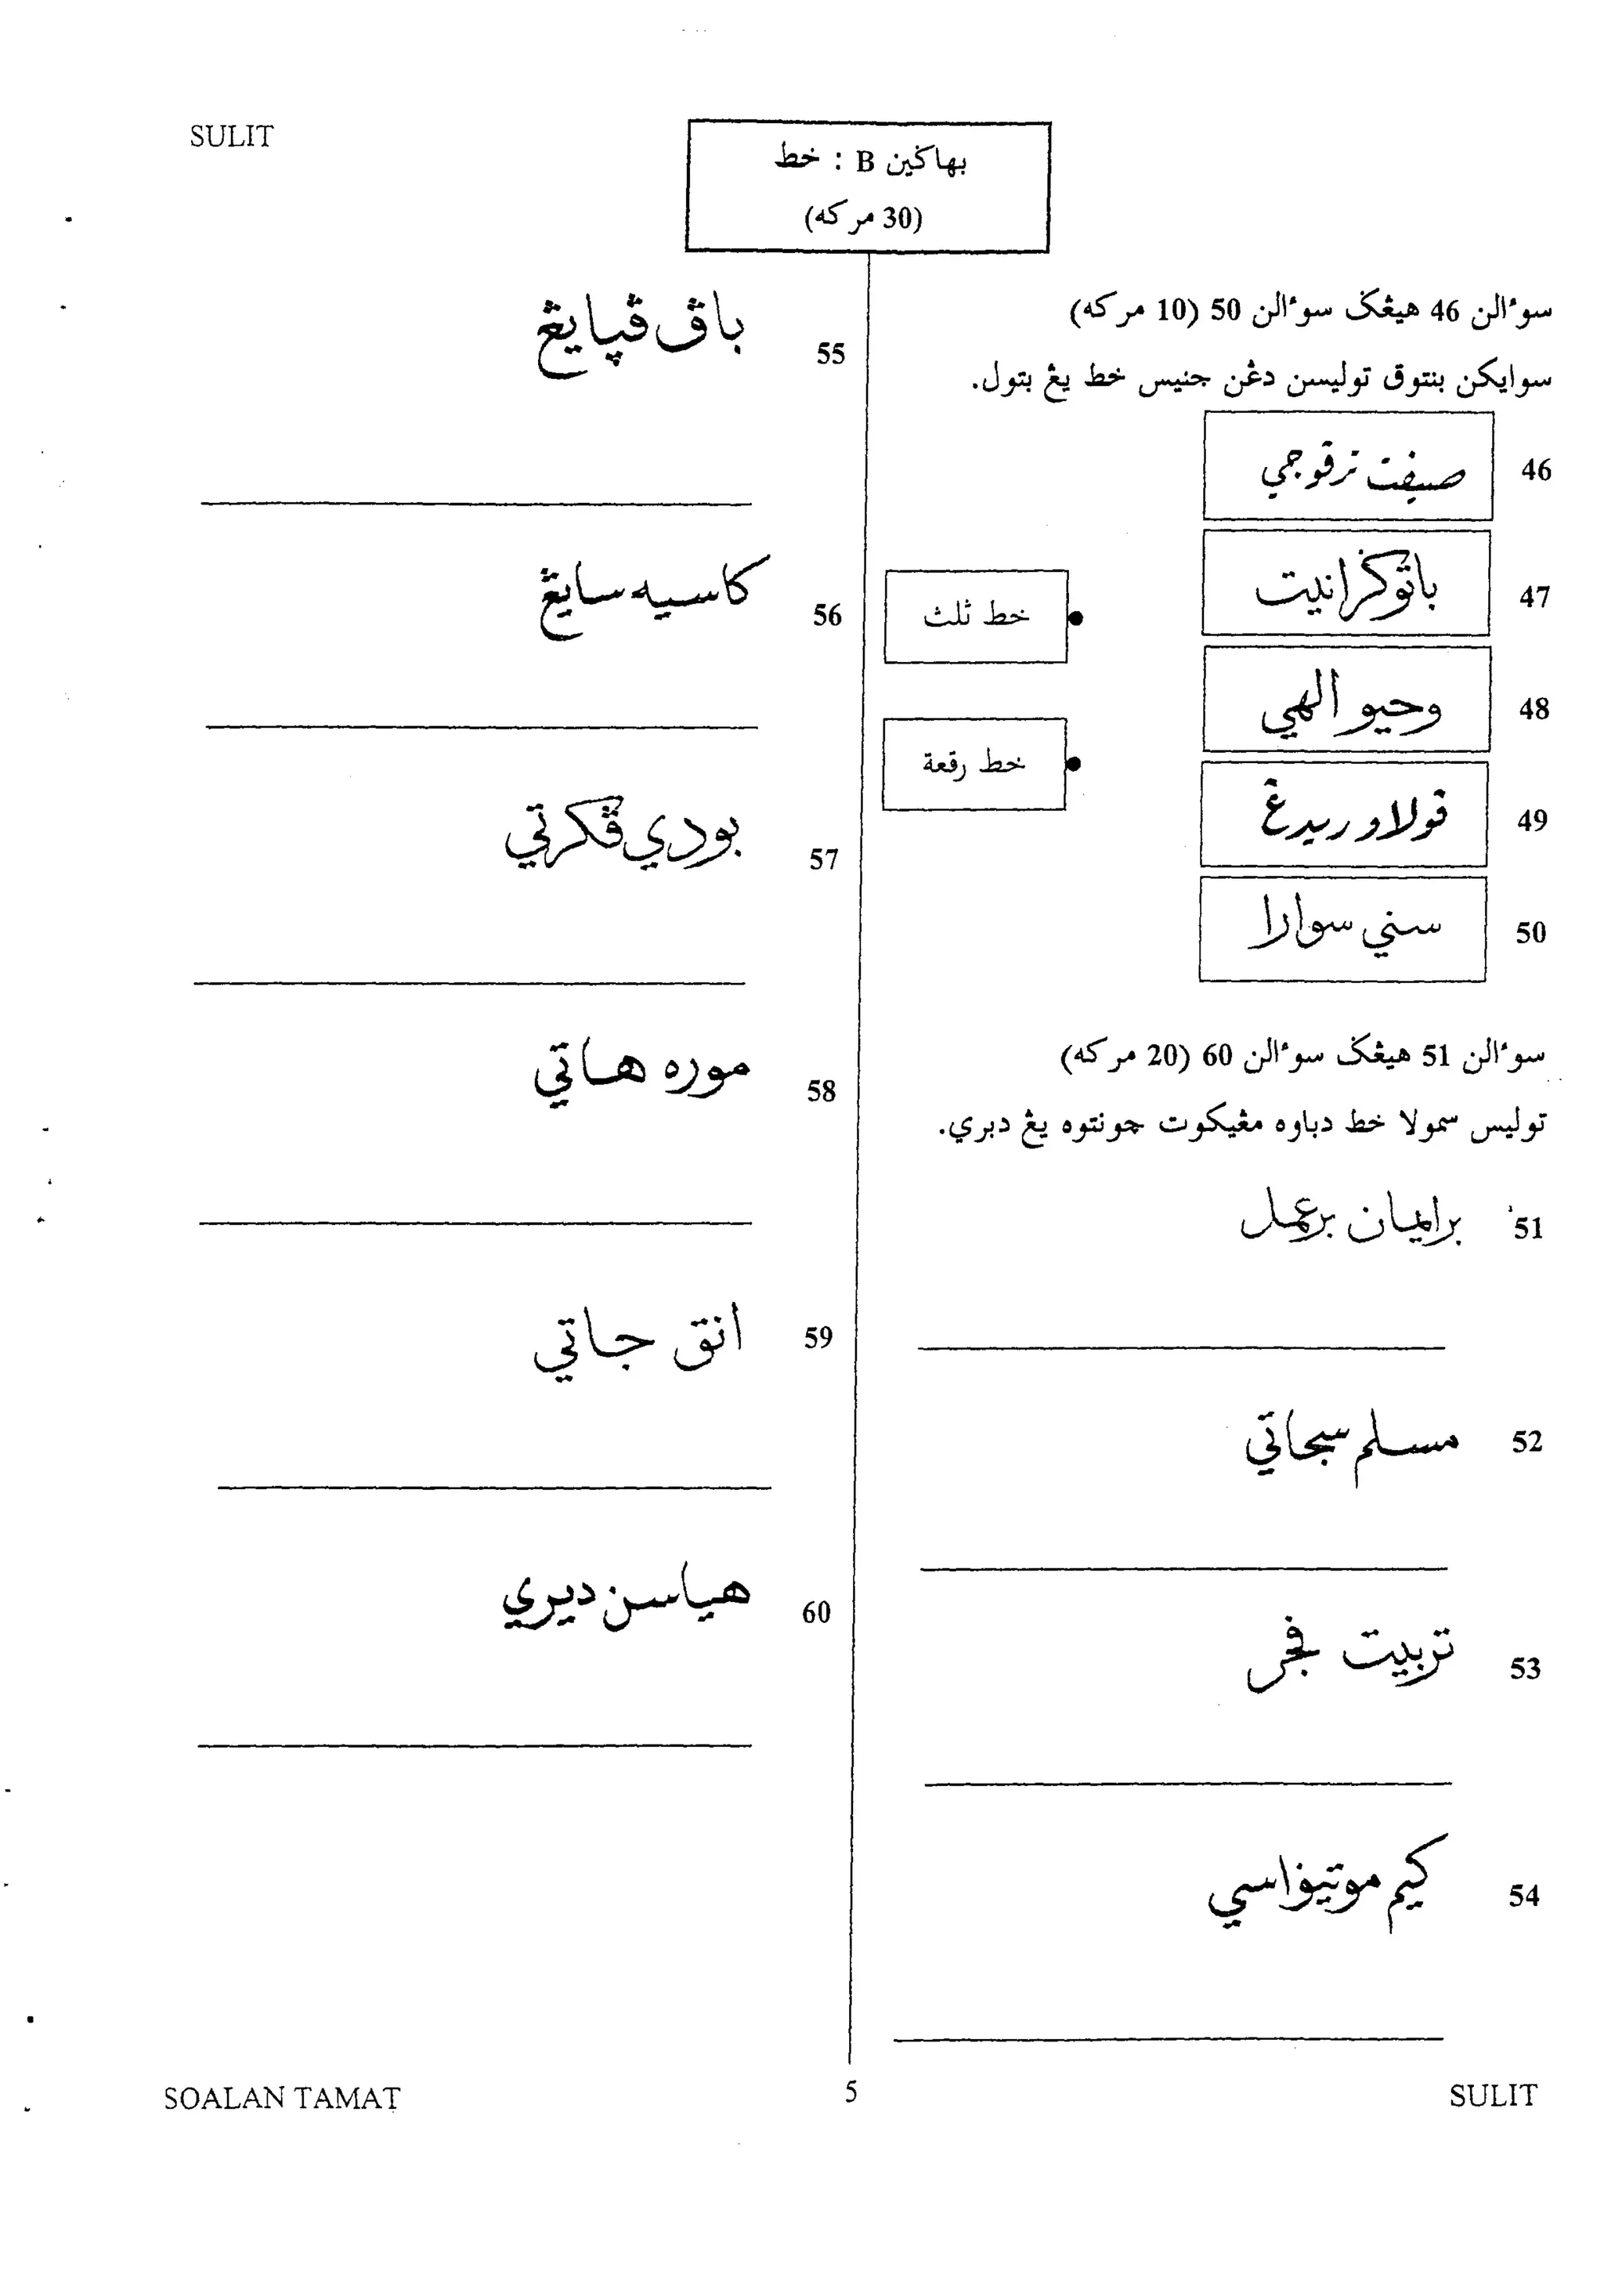 SULIT
بهاݢين B : خط
(30 مركه)
سوءالن 46 هيڠݢ سوءالن 50 (10 مركه)
سوايكن بنتوق توليسن دڠن جنيس خط يڠ بتول.
46 صيفت ترڤوجي
47 باتو ݢرانيت
48 وحيو الهي
49 ڤولاو ريدڠ
50 سني سوارا
خط ثلث
خط رقعة
سوءالن 51 هيڠݢ سوءالن 60 (20 مركه)
توليس سمولا خط دباوه مڠيكوت چونتوه يڠ دبري.
51 برايمان برعمل
52 مسلم سجاتي
53 تربيت فجر
54 كيم موتيۏاسي
55 باڤق ڤپايڠ
56 كاسيه سايڠ
57 بودي ڤكرتي
58 موره هاتي
59 انق جاتي
60 هياسن ديري
SOALAN TAMAT
5
SULIT